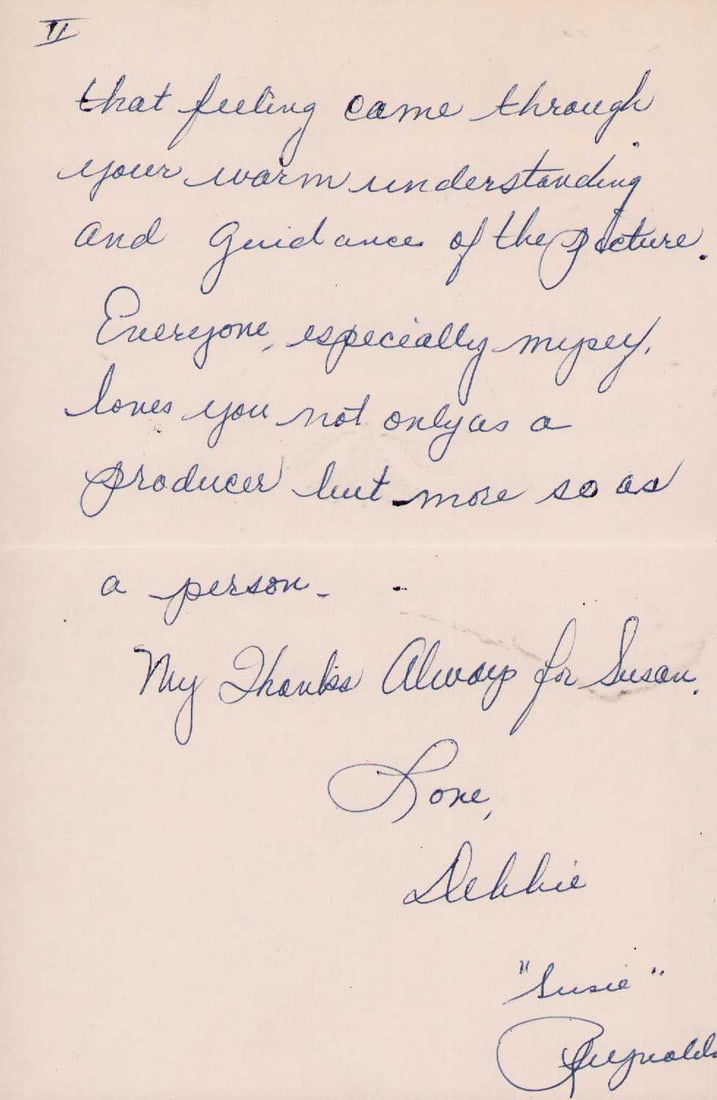 II
that feeling came through
your warm understanding
and guidance of the picture.
Everyone, especially myself,
loves you not only as a
producer but more so as
a person.
My Thanks Always for Susan.
Love,
Debbie
"Susie"
Reynolds